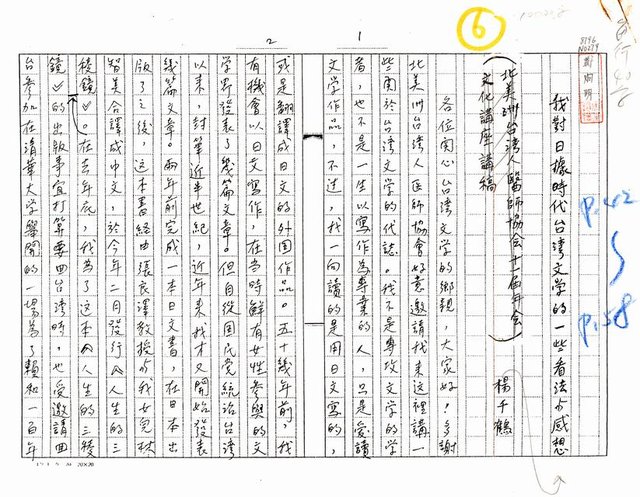 我對日據時代台湾文学的一些看法与感想
(北美洲台湾人醫師協会十一届年会)
文化講座講稿
楊千鶴
各位関心台湾文学的鄉親，大家好！多謝
北美洲台湾人医師協會好意邀請我来这裡講一
些関於台湾文学的代誌。我不是專攻文学的学
者，也不是一生以寫作為專業的人，只是愛讀
文学作品，不过，我一向讀的是用日文寫的，
或是翻譯成日文的外国作品。五十幾年前，我
有機會以日文寫作，在当時鮮有女性参與的文
学界發表了幾篇文章。但自從国民党統治台湾
以来，封筆近半世紀，近年来我才又開始發表
幾篇文章。兩年前完成一本日文書，在日本出
版了之後，这本書經由張良澤教授与我女兒林
智美合譯成中文，於今年二月發行《人生的三
稜鏡》。在去年底，我為了这本《人生的三稜
鏡》的出版事宜打算要回台湾時，也受邀請回
台参加在清華大学舉開的一場為了賴和一百年
⑥
1
2
8196
N0279
P.42
P.58
20×20